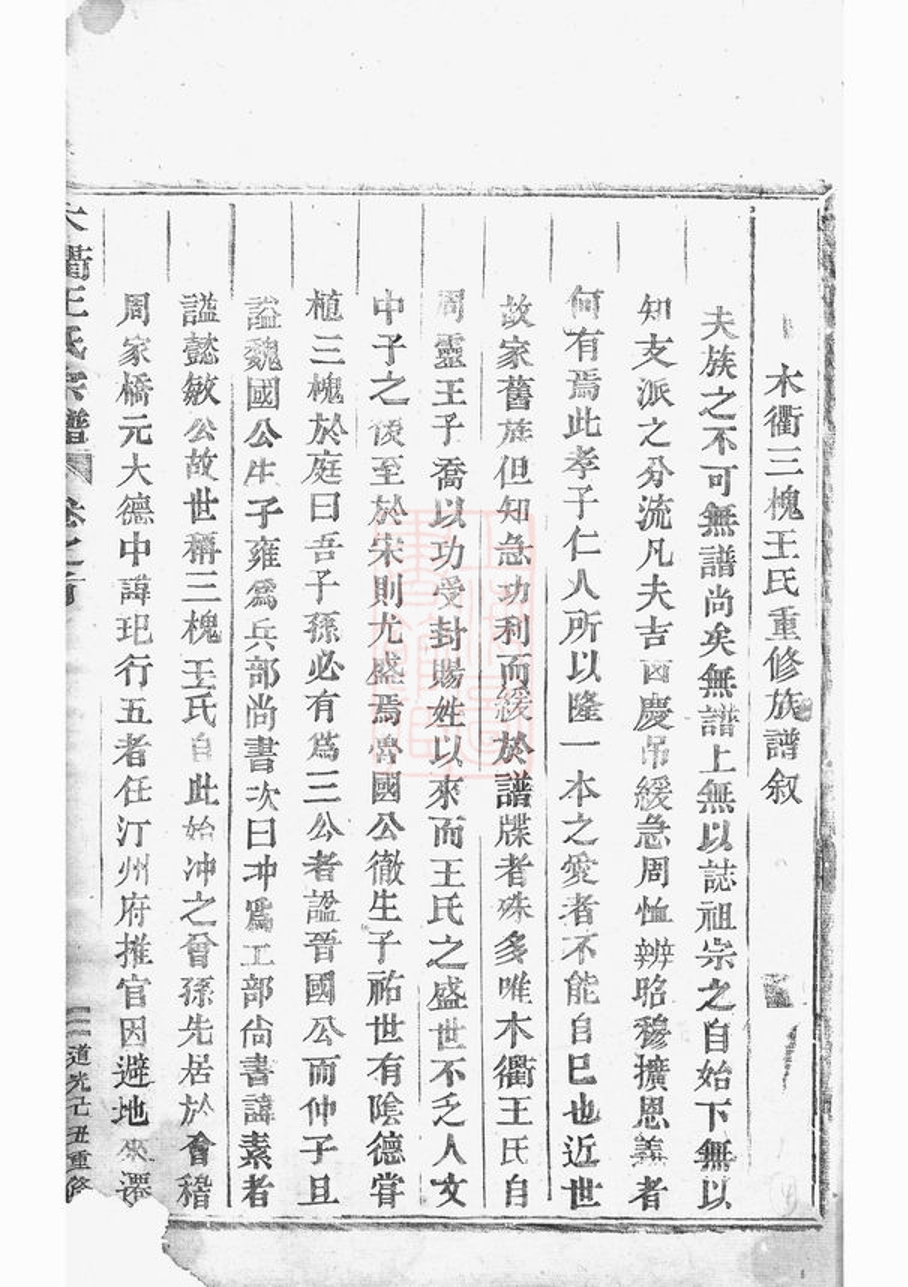 木衢三槐王氏重修族譜叙
夫族之不可無譜尚矣無譜上無以誌祖宗之自始下無以
知支派之分流凡夫吉凶慶吊緩急周恤辨昭穆擴恩義者
何有焉此孝子仁人所以隆一本之愛者不能自已也近世
故家舊族但知急功利而緩於譜牒者殊多唯木衢王氏自
周靈王子喬以功受封賜姓以來而王氏之盛世不乏人文
中子之後至於宋則尤盛焉魯國公徹生子祐世有陰德嘗
植三槐於庭曰吾子孫必有爲三公者諡晉國公而仲子旦
諡魏國公生子雍爲兵部尚書次曰冲爲工部尚書諱素者
諡懿敏公故世稱三槐王氏自此始冲之曾孫先居於會稽
周家橋元大德中諱玘行五者任汀州府推官因避地來遷
木衢王氏宗譜 卷之首 一 道光己丑重修